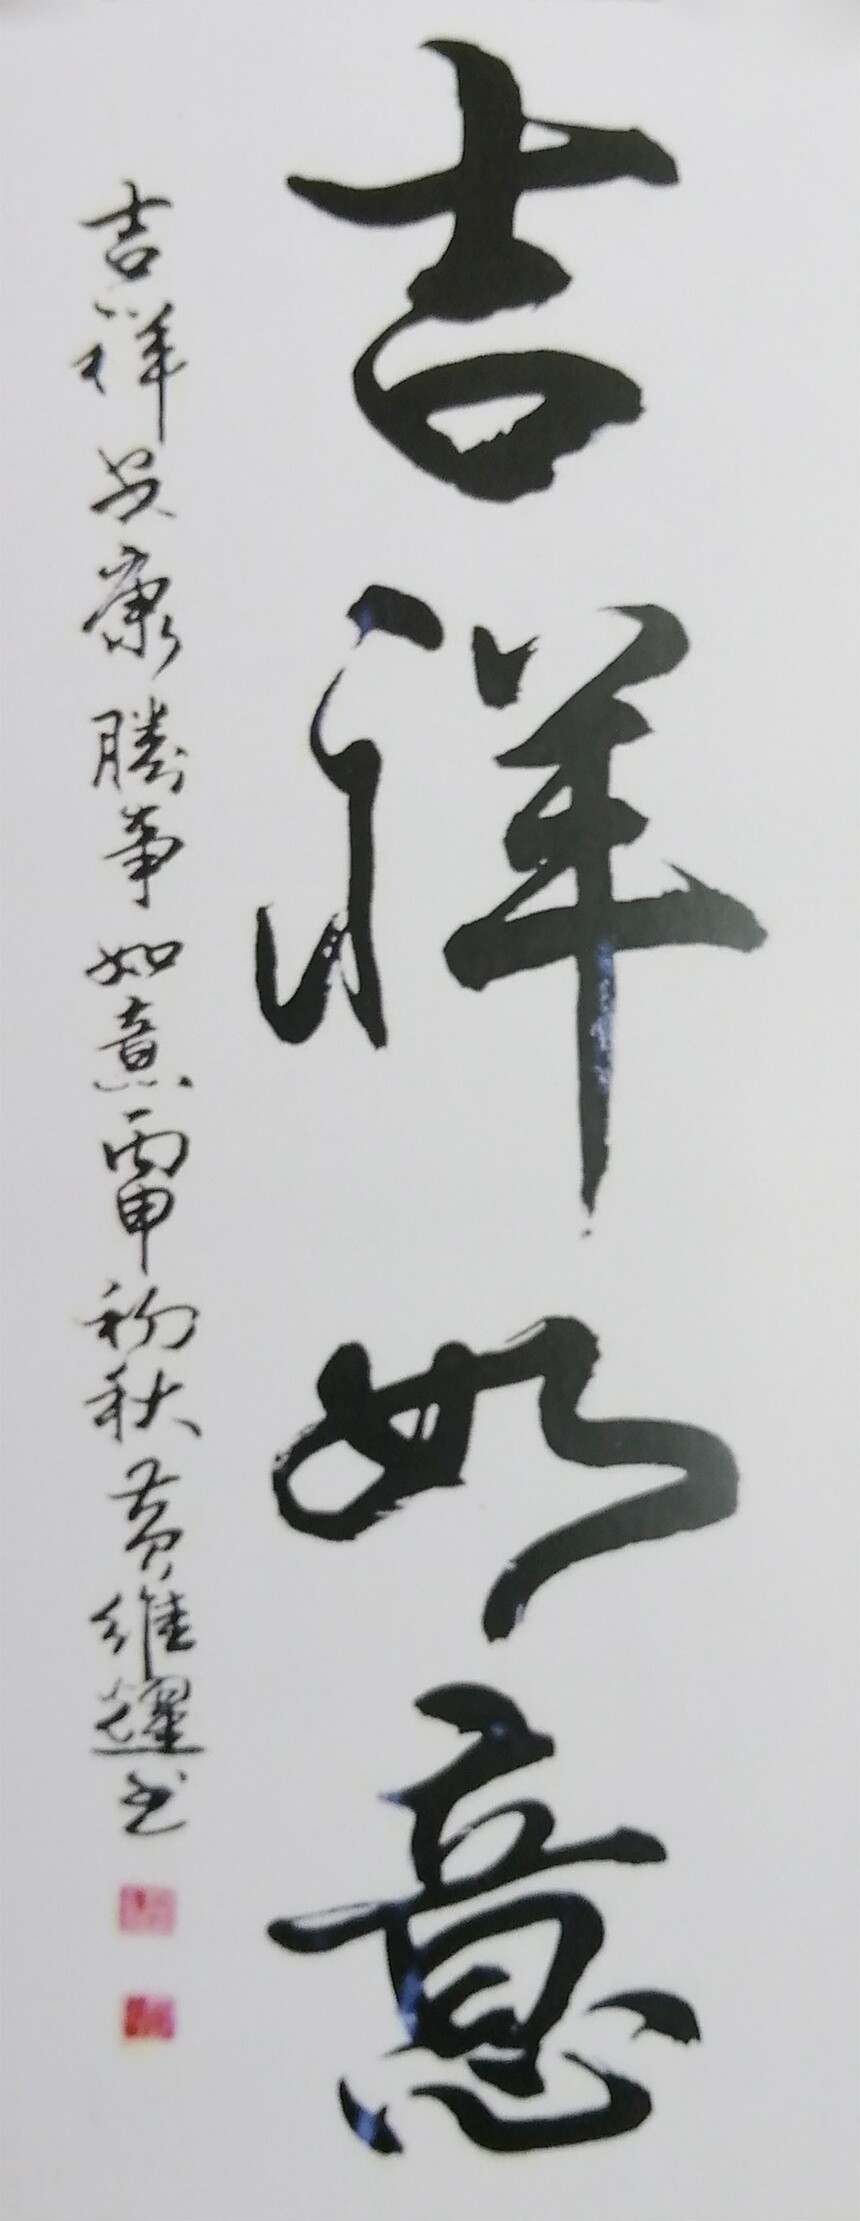 吉祥如意
吉祥安康勝事如意丙申初秋黄維耀书